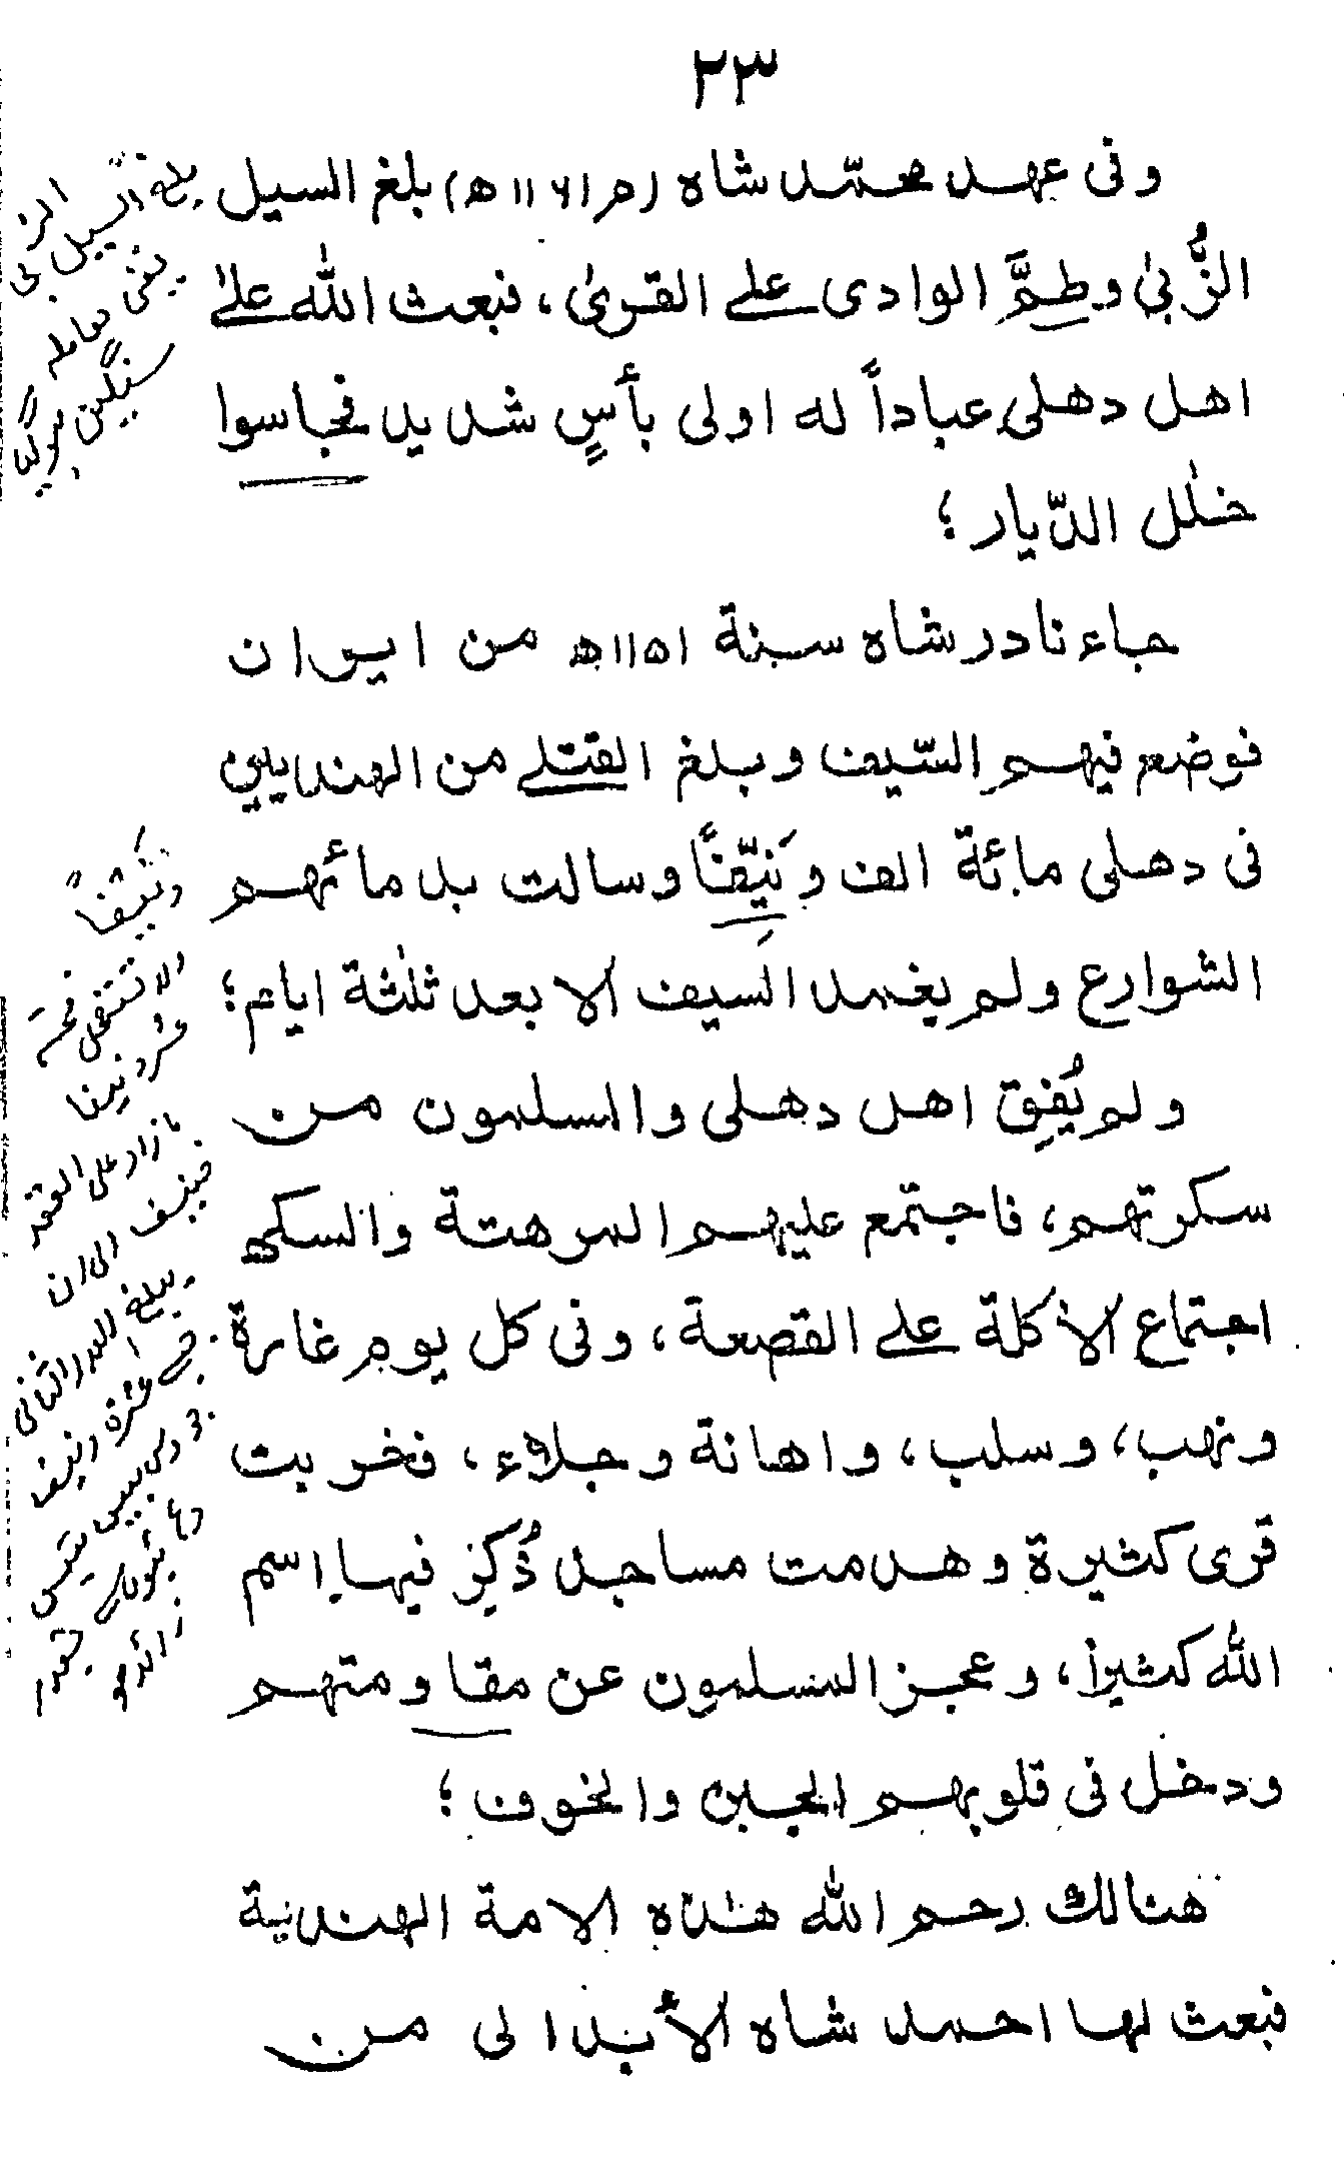 ٢٣
وفى عهد محمّد شاه (م ١١٦١ ھ) بلغ السيل
الزُّبىٰ وطمَّ الوادى على القرىٰ، فبعث الله علىٰ
اهل دهلى عباداً له اولى بأسٍ شديد فجاسوا
خلٰل الدّيار؛
جاء نادر شاه سنة ١١٥١ھ من ايران
فوضع فيهم السّيف وبلغ القتلے من الهنديين
فى دهلى مائة الف وَنَيِّفًا وسالت بدمائهم
الشوارع ولم يغمد السيف الا بعد ثلٰثة ايام؛
ولم يُفِق اهل دهلى والمسلمون من
سكرتهم، فاجتمع عليهم المرهتة والسكھ
اجتماع الأكلة علے القصعة، وفى كل يوم غارة
ونهب، وسلب، واهانة وجلاء، فخربت
قرى كثيرة وهدمت مساجد ذُكِر فيها اسم
الله كثيرا، وعجز المسلمون عن مقاومتهم
ودخل فى قلوبهم الجبن والخوف؛
هنالك رحم الله هٰذه الامة الهندية
فبعث لها احمد شاه الأبدالى من
بلغ السيل الزبى
يعنى معاملہ
سنگین ہوگیا
ونَيّفاً